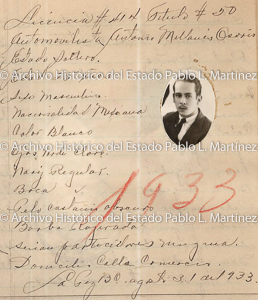 Licencia # 414 Título # 50
Automovilista Antonio
Estado Soltero.
© Archivo Histórico del Estado Pablo L. Martínez
Sexo Masculino
Nacionalidad Mexicana
Color Blanco
© Archivo Histórico del Estado Pablo L. Martínez
Ojos Verde Claro.
Nariz Regular.
Boca
1933
© Archivo Histórico del Estado Pablo L. Martínez
Pelo Castaño obscuro
Barba
Señas particulares ninguna.
Domicilio Calle Comercio.
© Archivo Histórico del Estado Pablo L. Martínez
La Paz B.C. agosto 1 de 1933.